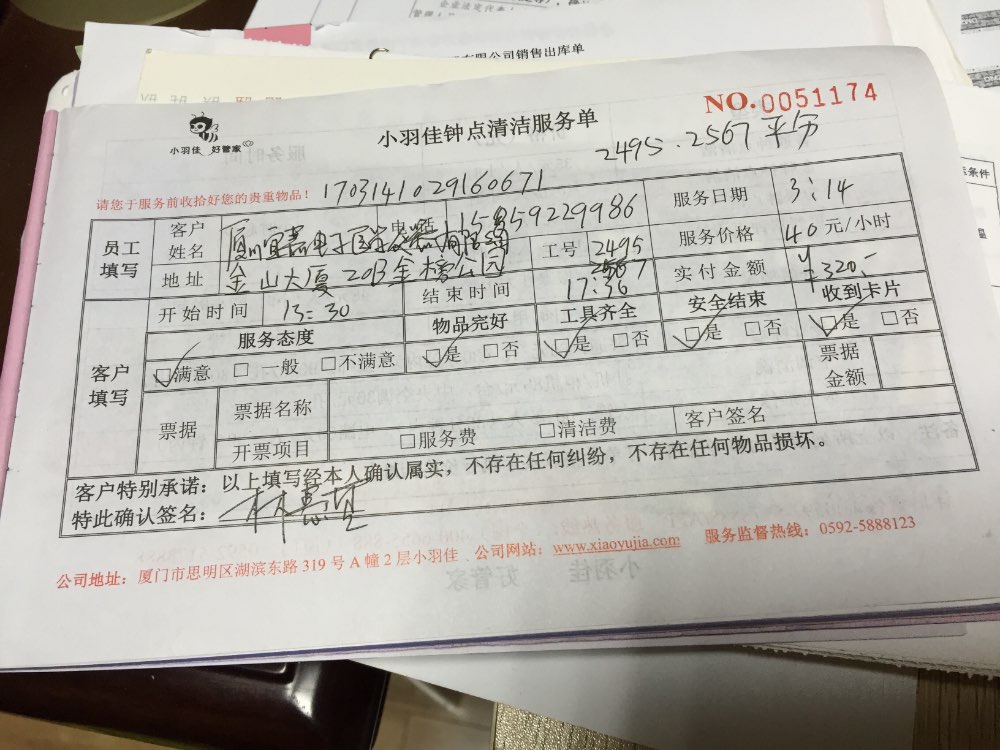 企业法定代表人
有限公司销售出库单
小羽佳 好管家
小羽佳钟点清洁服务单
NO.0051174
2495.2567平分
请您于服务前收拾好您的贵重物品！
1703141029160671
员工填写
客户姓名
电话
15859229986
服务日期
3:14
地址
金山大厦20B金榜公园
工号
2495
2567
服务价格
40元/小时
开始时间
13:30
结束时间
17:36
实付金额
¥320.-
客户填写
服务态度
物品完好
工具齐全
安全结束
收到卡片
☑满意 □一般 □不满意
☑是 □否
☑是 □否
☑是 □否
☑是 □否
票据
票据名称
票据金额
开票项目
□服务费 □清洁费
客户签名
客户特别承诺：以上填写经本人确认属实，不存在任何纠纷，不存在任何物品损坏。
特此确认签名：
公司地址：厦门市思明区湖滨东路 319 号 A 幢 2 层小羽佳 公司网站：www.xiaoyujia.com 服务监督热线：0592-5888123